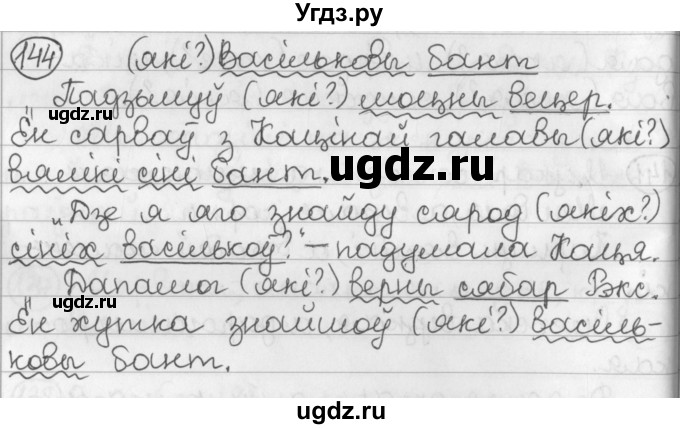 Угдз.ру
144 (які?) Васільковы бант
Падзьмуў (які?) моцны вецер.
Ён сарваў з Кацінай галавы (які?)
вялікі сіні бант.
„Дзе я яго знайду сярод (якіх?)
сініх васількоў?“ – падумала Каця.
Дапамог (які?) верны сябар Рэкс.
Ён хутка знайшоў (які?) васіль-
ковы бант.
ugdz.ru
ugdz.ru
ugdz.ru
ugdz.ru
ugdz.ru
ugdz.ru